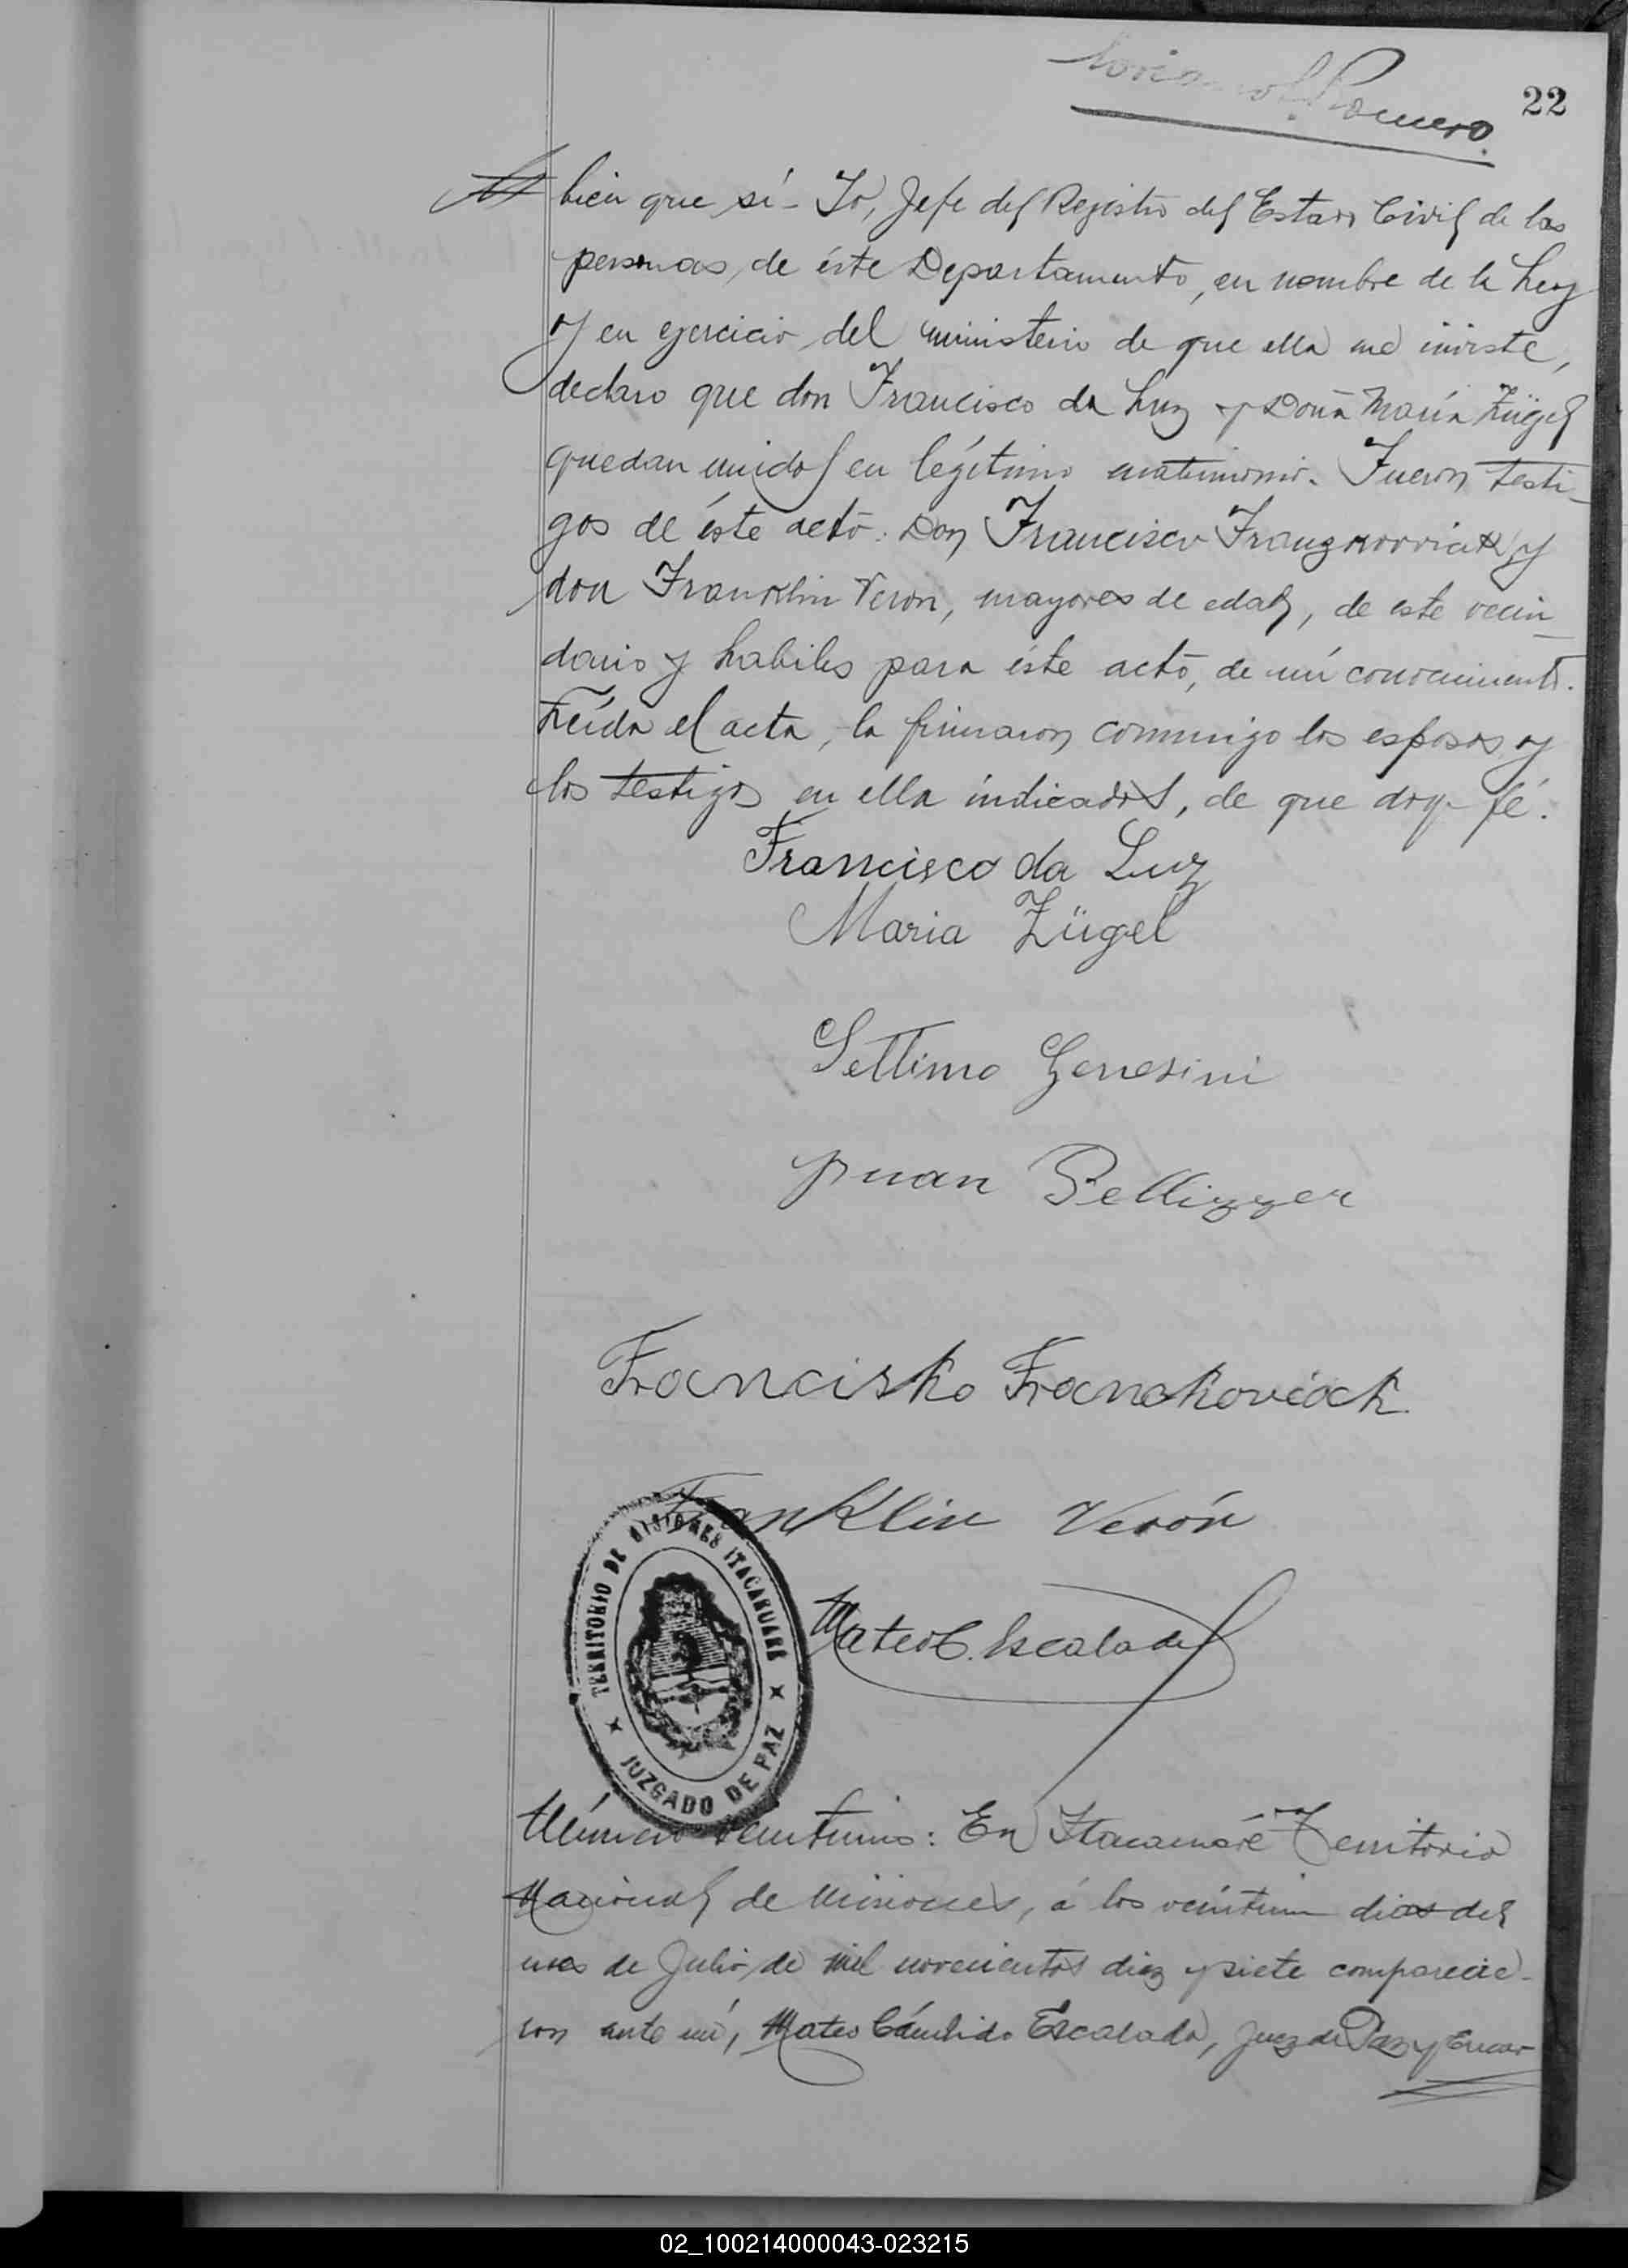 Romero.
22
bien que sí - Yo, Jefe del Registro del Estado Civil de las
personas, de éste Departamento, en nombre de la Ley
y en ejercicio del ministerio de que ella me inviste,
declaro que don Francisco da Luz y Doña María Zügel
quedan unidos en legítimo matrimonio. Fueron testi-
gos de éste acto: Don Francisco y
don Franklin Veron, mayores de edad, de este vecin-
dario y habiles para éste acto, de mí conocimiento.
Leída el acta, la firmaron conmigo los esposos y
los testigos en ella indicados, de que doy fé.
Francisco da Luz
Maria Zügel
Settimo Genesini
Juan Pellizzer
Francisko Franckoviack
Franklin Verón
Mateo C. Escalada
TERRITORIO DE MISIONES ITACARUARE
JUZGADO DE PAZ
Número veintiuno: En Itacaruaré Territorio
Nacional de Misiones, á los veintiun dias del
mes de Julio de mil novecientos diez y siete comparecie-
ron ante mí, Mateo Cándido Escalada, Juez de Paz y Encar
02_100214000043-023215